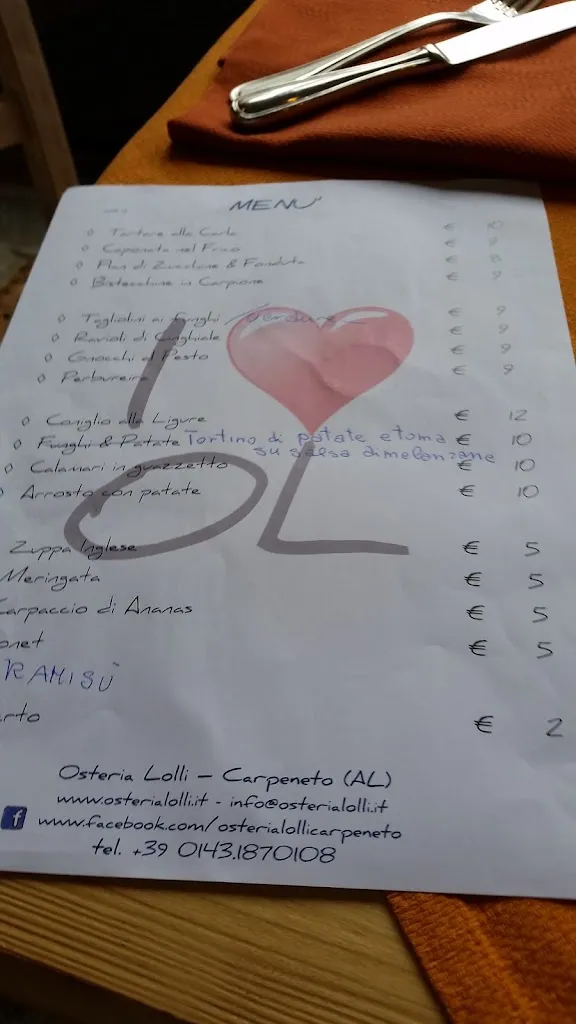 MENU'
◊ Tartare alla Carlo € 10
◊ Caponata nel Fraco €
◊ Flan di Zucchine & Fonduta € 8
◊ Bistecchine in Carpione € 9
◊ Tagliolini ai funghi / Verdure € 9
◊ Ravioli di Cinghiale € 9
◊ Gnocchi al Pesto € 9
◊ Perbureira € 9
◊ Coniglio alla Ligure € 12
◊ Funghi & Patate Tortino di patate e toma € 10
su salsa di melanzane
◊ Calamari in guazzetto € 10
◊ Arrosto con patate € 10
I
OL
Zuppa Inglese € 5
Meringata € 5
Carpaccio di Ananas € 5
onet € 5
RAMISÙ
rto € 2
Osteria Lolli – Carpeneto (AL)
www.osterialolli.it - info@osterialolli.it
f www.facebook.com/osterialollicarpeneto
tel. +39 0143.1870108